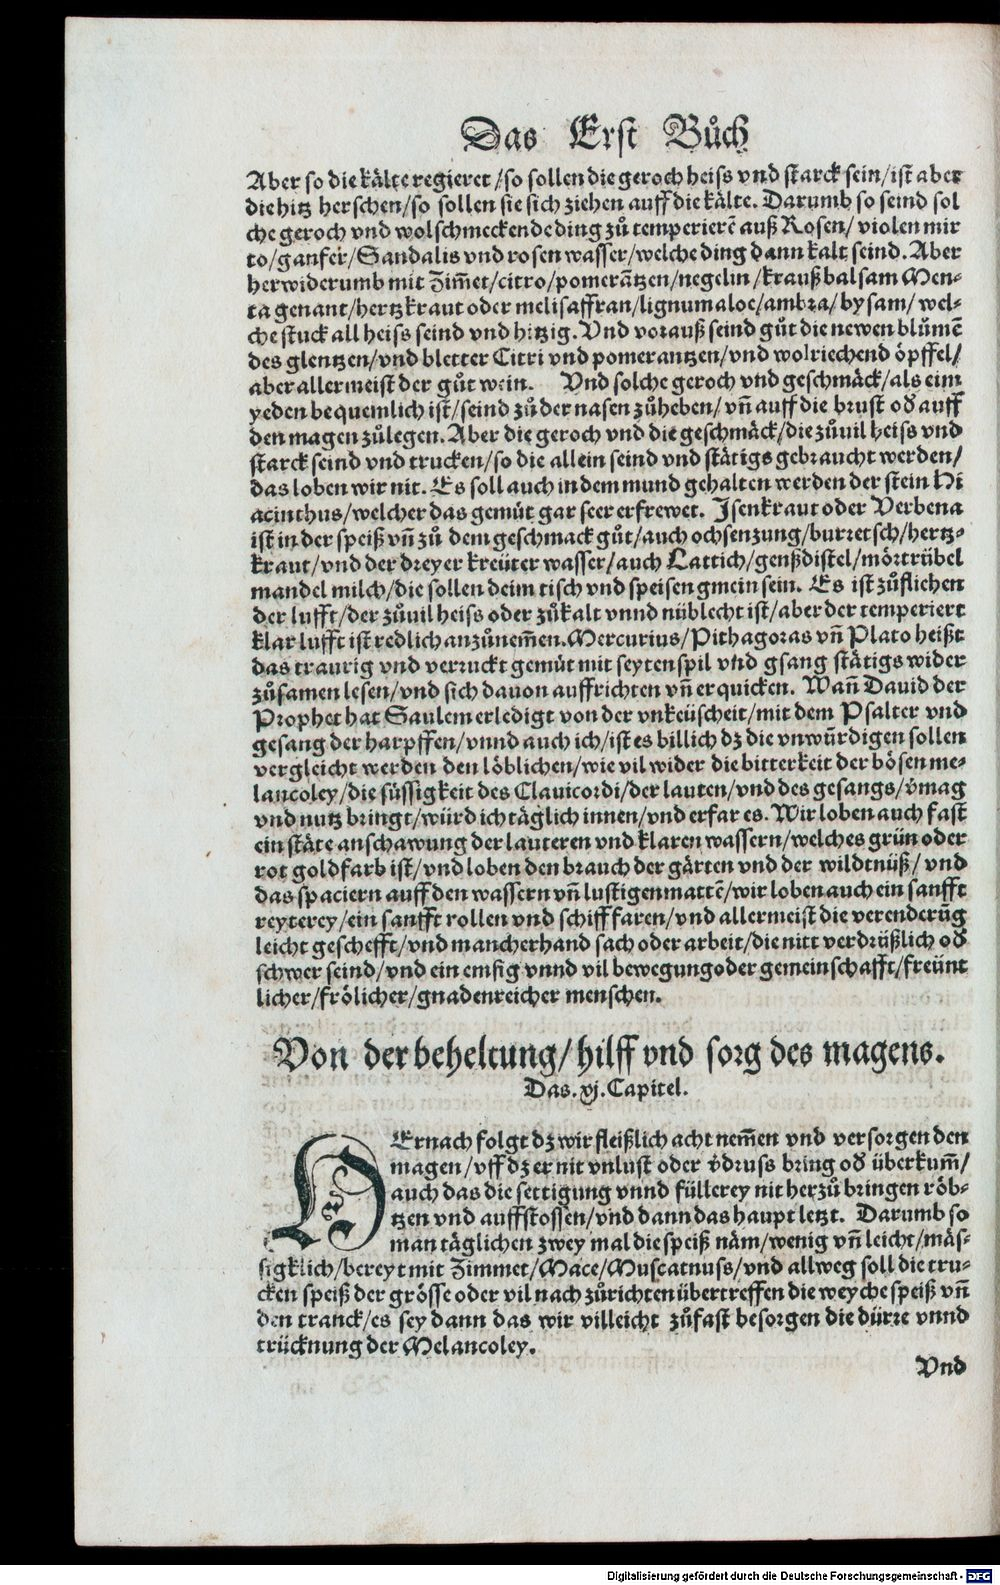 Das Erst Bůch
Aber so die kälte regieret/so sollen die geroch heiss vnd starck sein/ist aber
die hitz herschen/so sollen sie sich ziehen auff die kälte. Darumb so seind sol
che geroch vnd wolschmeckende ding zů temperierẽ auß Rosen/ violen mir
to/ganfer/Sandalis vnd rosen wasser/welche ding dann kalt seind. Aber
herwiderumb mit Zim̃et/citro/pomerãtzen/negelin/krauß balsam Men-
ta genant/hertzkraut oder melisaffran/lignum aloe/ambra/bysam/ wel-
che stuck all heiss seind vnd hitzig. Vnd vorauß seind gůt die newen blůmẽ
des glentzen/vnd bletter Citri vnd pomerantzen/vnd wolriechend öpffel/
aber allermeist der gůt wein. Vnd solche geroch vnd geschmäck/als eim
yeden bequemlich ist/seind zů der nasen zůheben/ vñ auff die brust oď auff
den magen zůlegen. Aber die geroch vnd die geschmäck/die zůuil heiss vnd
starck seind vnd trucken/so die allein seind vnd stätigs gebraucht werden/
das loben wir nit. Es soll auch in dem mund gehalten werden der stein Hi
acinthus/welcher das gemüt gar seer erfrewet. Isenkraut oder Verbena
ist in der speiß vñ zů dem geschmack gůt/auch ochsenzung/burretsch/hertz-
kraut/vnd der dreyer kreüter wasser/auch Lattich/genßdistel/mörtrübel
mandel milch/die sollen deim tisch vnd speisen gmein sein. Es ist zůflichen
der lufft/der zůuil heiss oder zůkalt vnnd nüblecht ist/aber der temperiert
klar lufft ist redlich anzůnem̃en. Mercurius/Pithagoras vñ Plato heißt
das traurig vnd verruckt gemüt mit seytenspil vnd gsang stätigs wider
zůsamen lesen/vnd sich dauon auffrichten vñ erquicken. Wañ Dauid der
Prophet hat Saulem erledigt von der vnkeüscheit/mit dem Psalter vnd
gesang der harpffen/vnnd auch ich/ist es billich dz die vnwürdigen sollen
vergleicht werden den löblichen/wie vil wider die bitterkeit der bösen me-
lancoley/die süssigkeit des Clauicordi/der lauten/vnd des gesangs/v̓mag
vnd nutz bringt/würd ich täglich innen/vnd erfar es. Wir loben auch fast
ein stäte anschawung der lauteren vnd klaren wassern/welches grün oder
rot goldfarb ist/vnd loben den brauch der gärten vnd der wildtnüß/ vnd
das spaciern auff den wassern vñ lustigen mattẽ/wir loben auch ein sanfft
reyterey/ein sanfft rollen vnd schiff faren/vnd allermeist die verenderũg
leicht geschefft/vnd mancherhand sach oder arbeit/die nitt verdrüßlich oď
schwer seind/vnd ein emsig vnnd vil bewegung oder gemeinschafft/freünt
licher/frölicher/gnadenreicher menschen.
Von der beheltung/hilff vnd sorg des magens.
Das.xj.Capitel.
HErnach folgt dz wir fleißlich acht nem̃en vnd versorgen den
magen/vff dz er nit vnlust oder v̓druss bring oď überkum̃/
auch das die settigung vnnd füllerey nit herzů bringen röb-
tzen vnd auffstossen/vnd dann das haupt letzt. Darumb so
man täglichen zwey mal die speiß näm/wenig vñ leicht/mäs-
sigklich/bereyt mit Zimmet/Mace/Muscatnuss/vnd allweg soll die tru-
cken speiß der grösse oder vil nach zůrichten übertreffen die weyche speiß vñ
den tranck/es sey dann das wir villeicht zůfast besorgen die dürre vnnd
trücknung der Melancoley.
Vnd
Digitalisierung gefördert durch die Deutsche Forschungsgemeinschaft - DFG